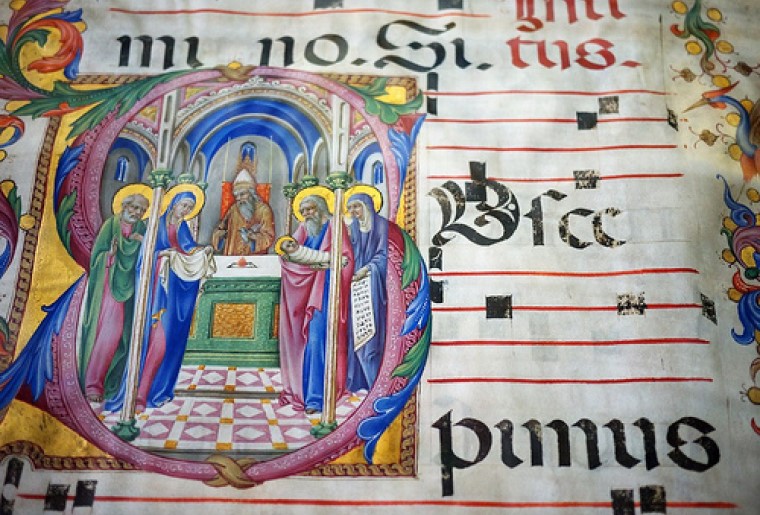 mi no. Si. tus.
Vsce
pimus